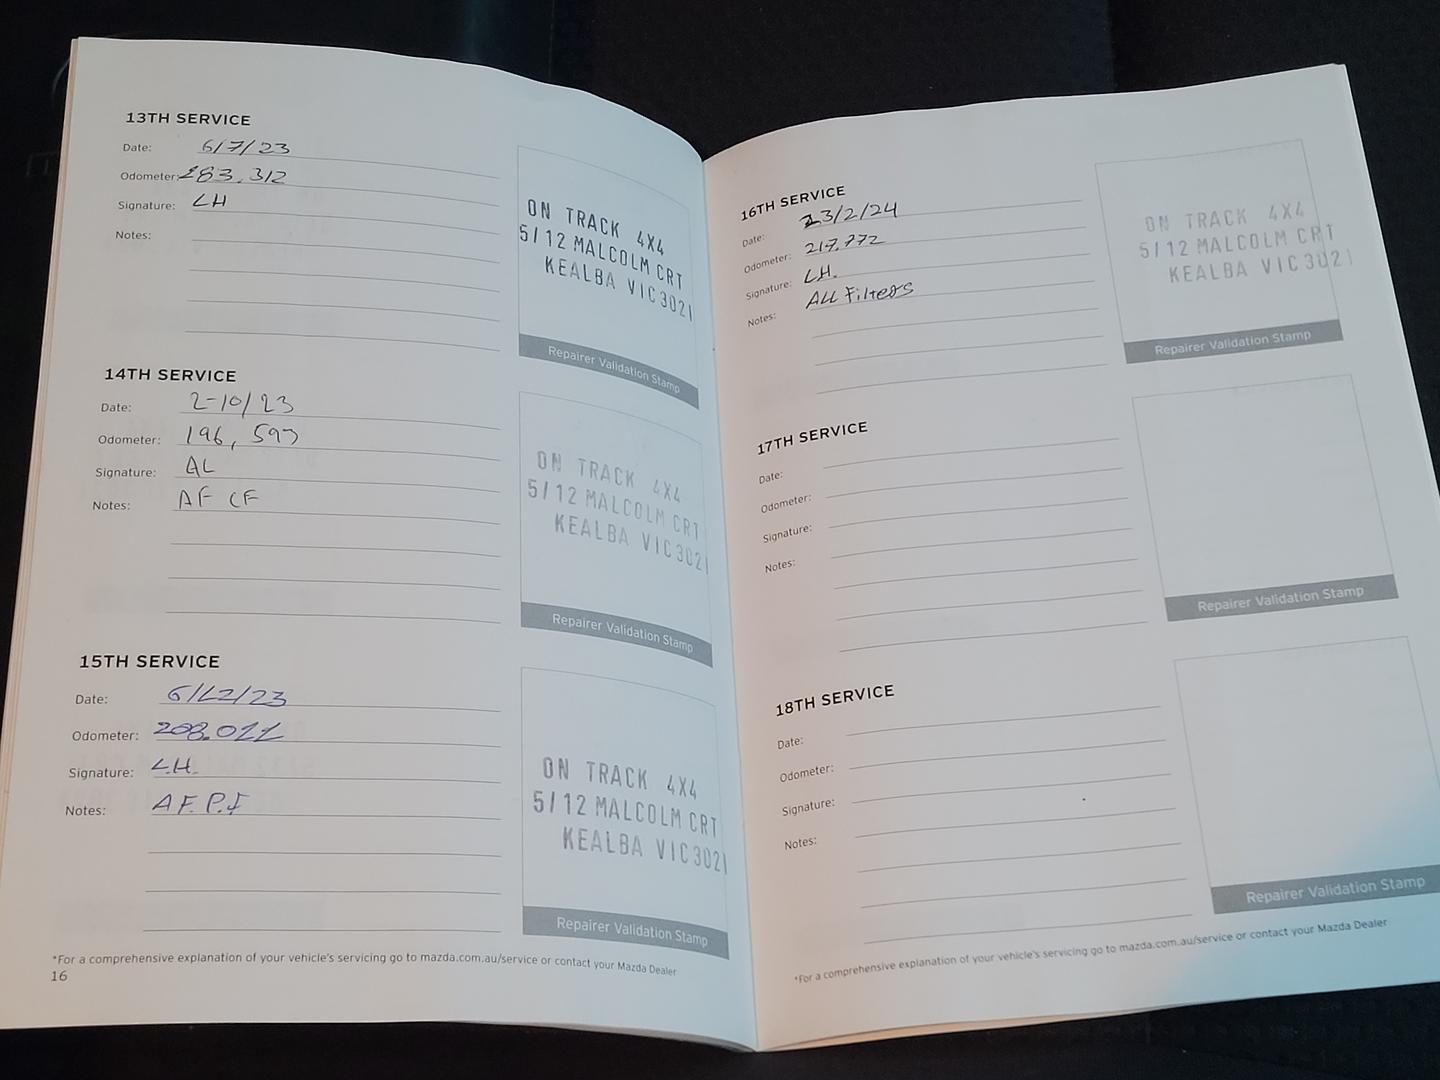 13TH SERVICE
Date: 6/7/23
Odometer: 183.312
Signature: LH
Notes:
ON TRACK 4X4
5/12 MALCOLM CRT
KEALBA VIC 3021
Repairer Validation Stamp
14TH SERVICE
Date: 2-10/23
Odometer: 196, 597
Signature: AL
Notes: AF CF
ON TRACK 4X4
5/12 MALCOLM CRT
KEALBA VIC 3021
Repairer Validation Stamp
15TH SERVICE
Date: 6/12/23
Odometer: 208.011
Signature: L.H.
Notes: A F. P. F
ON TRACK 4X4
5/12 MALCOLM CRT
KEALBA VIC 3021
Repairer Validation Stamp
*For a comprehensive explanation of your vehicle's servicing go to mazda.com.au/service or contact your Mazda Dealer
16
16TH SERVICE
Date: 13/2/24
Odometer: 217,772
Signature: LH.
Notes: ALL Filters
ON TRACK 4X4
5/12 MALCOLM CRT
KEALBA VIC 3021
Repairer Validation Stamp
17TH SERVICE
Date:
Odometer:
Signature:
Notes:
Repairer Validation Stamp
18TH SERVICE
Date:
Odometer:
Signature:
Notes:
Repairer Validation Stamp
*For a comprehensive explanation of your vehicle's servicing go to mazda.com.au/service or contact your Mazda Dealer